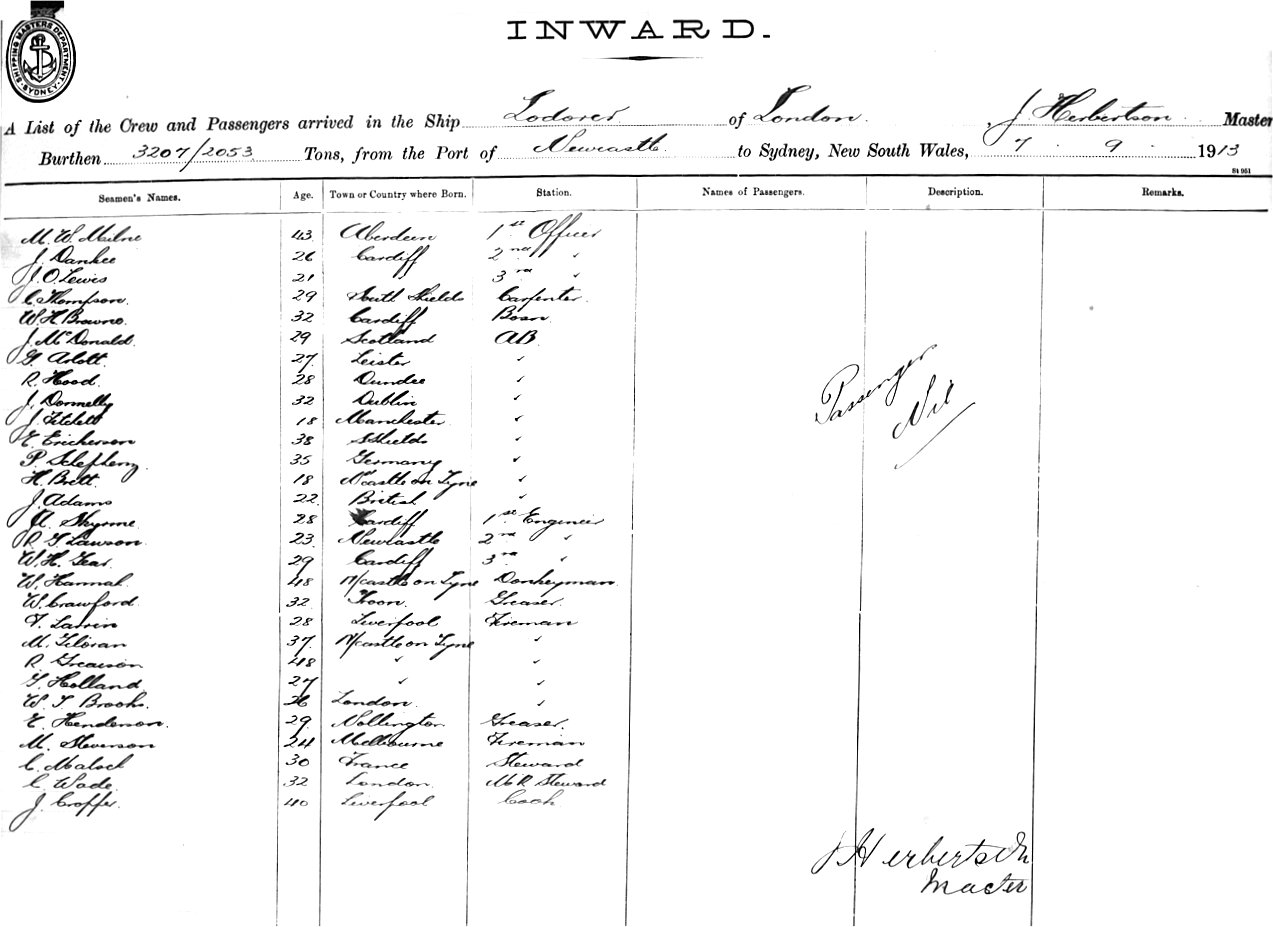 SHIPPING MASTERS DEPARTMENT. SYDNEY.
INWARD.
A List of the Crew and Passengers arrived in the Ship Lodorer of London. J Herbertson Master
Burthen 3207/2053 Tons, from the Port of Newcastle to Sydney, New South Wales, 7 . 9 . 1913
St 951
Seamen's Names. Age. Town or Country where Born. Station. Names of Passengers. Description. Remarks.
M. W. Milne 43 Aberdeen 1st Officer
J. Dankee 26 Cardiff 2nd "
J. O. Lewis 21 3rd "
C. Thompson. 29 South Shields Carpenter.
W. H. Browne. 32 Cardiff Bosn
J. McDonald. 29 Scotland AB.
G. Arlott. 27 Leister "
R. Hood. 28 Dundee "
J. Donnelly 32 Dublin "
J. Fitchett 18 Manchester "
E. Erickerson 38 SShields "
P. 35 Germany "
H. Brett. 18 Ncastle on Tyne "
J. Adams 22 British "
A. Skyrme 28 Cardiff 1st Engineer
R. T. Lawson. 23 Newcastle 2nd "
W. H. Gear. 29 Cardiff 3rd "
W. Hannah. 48 N/castle on Tyne Donkeyman.
W. Crawford. 32 Troon. Greaser.
28 Liverpool Fireman
M. 37 N/castle on Tyne "
R. Greaison 48 " "
T. Holland. 27 " "
W. T. Brooks. 26 London. "
E. Henderson. 29 Greaser.
M. Steverson 24 Melbourne Fireman
C. 30 France Steward
C. Wade. 32 London. M.R. Steward
J. 40 Liverpool Cook
Passenger
Nil
J Herbertson
Master